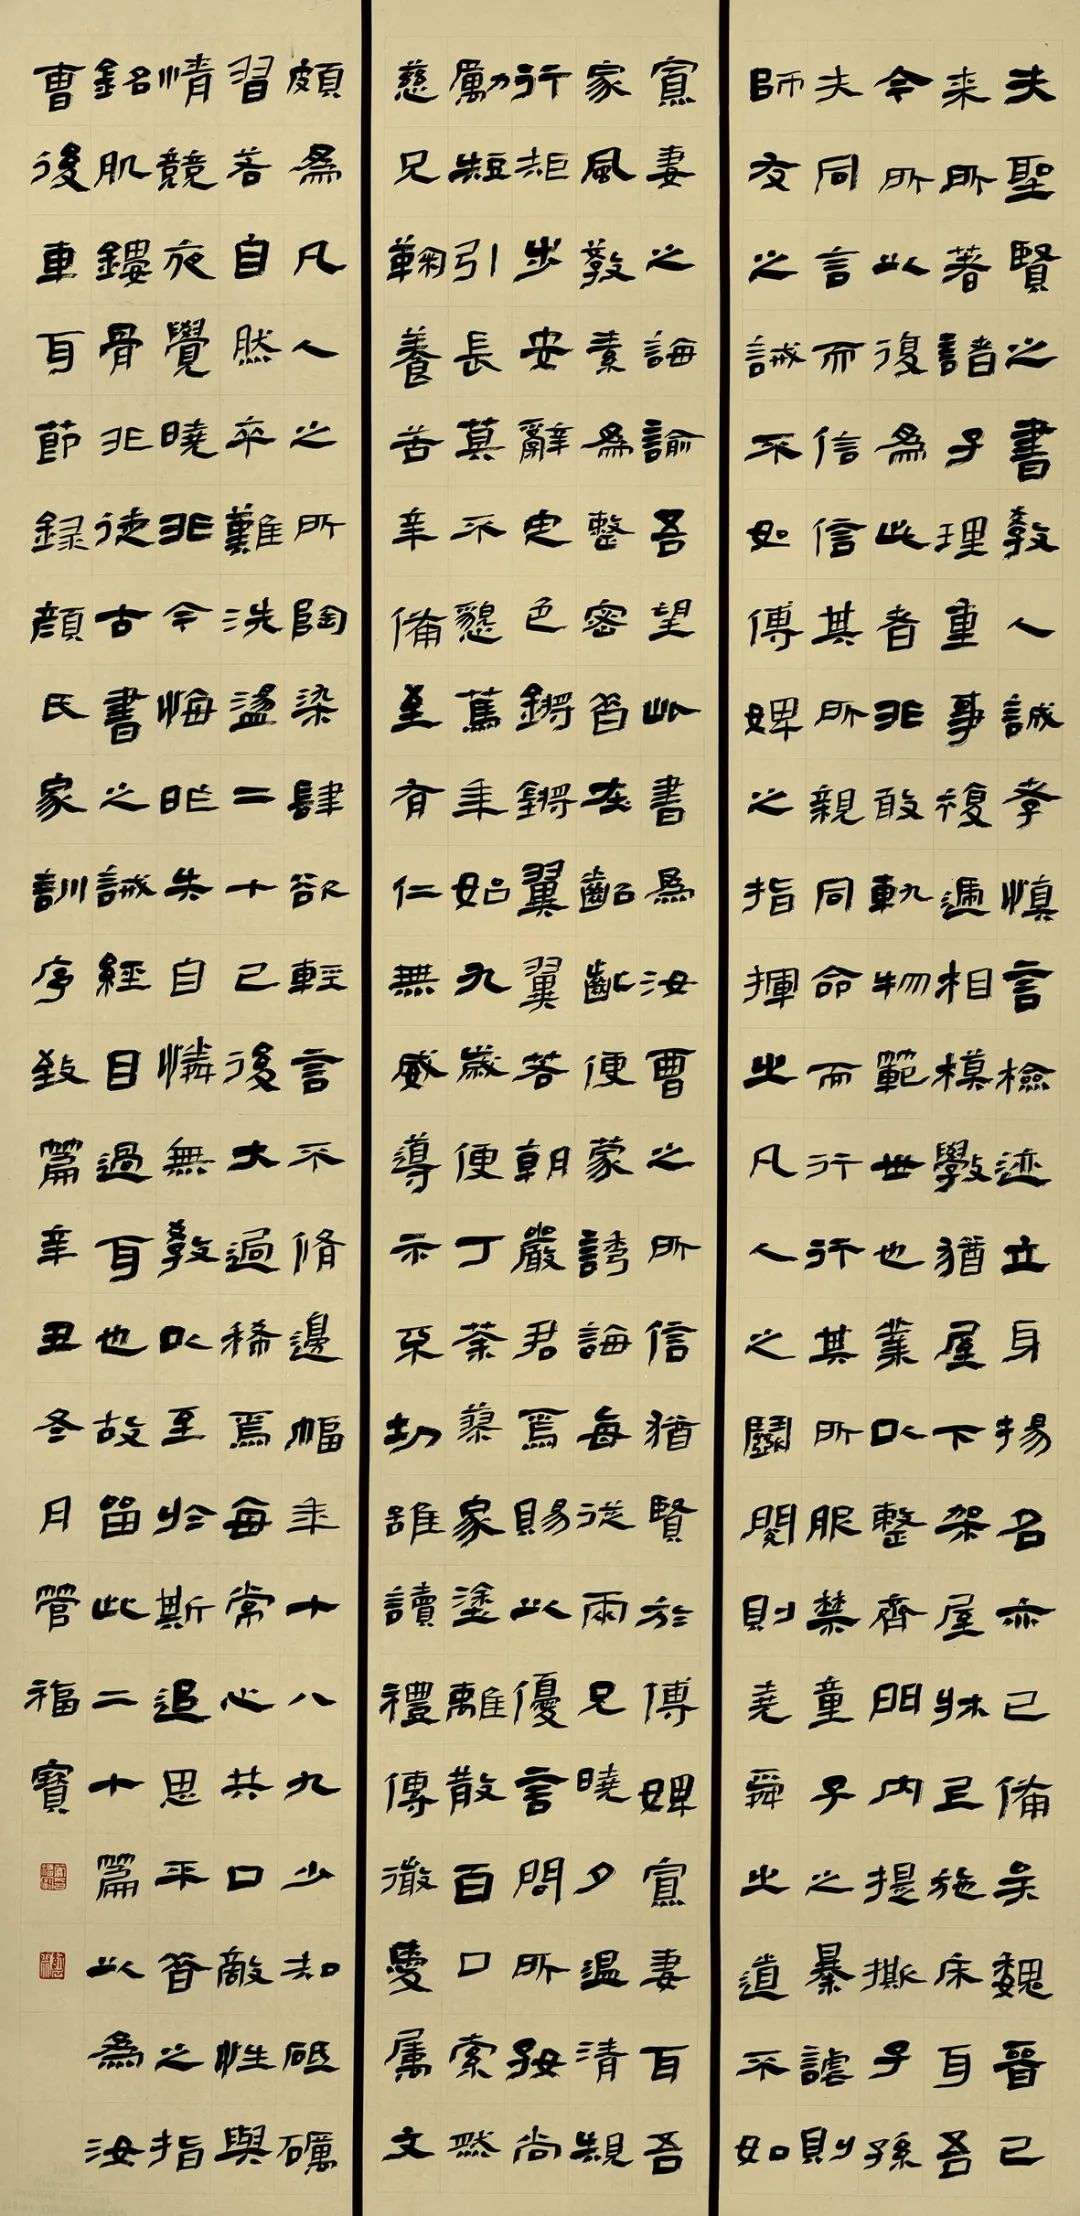 夫聖賢之書教人誠孝慎言檢迹立身揚名亦已備矣魏晉已
来所著諸子理重事複遞相模斅猶屋下架屋牀上施床耳吾
今所以復為此者非敢軌物範世也業以整齊門內提撕子孫
夫同言而信信其所親同命而行行其所服禁童子之暴謔則
師友之誡不如傅婢之指揮止凡人之鬬鬩則堯舜之道不如
寡妻之誨諭吾望此書為汝曹之所信猶賢於傅婢寡妻耳吾
家風教素為整密昔在齠齔便蒙誘誨每從兩兄曉夕温清規
行矩步安辭定色鏘鏘翼翼若朝嚴君焉賜以優言問所好尚
勵短引長莫不懇篤年始九歲便丁荼蓼家塗離散百口索然
慈兄鞠養苦辛備至有仁無威導示不切雖讀禮傳微愛屬文
頗為凡人之所陶染肆欲輕言不脩邊幅年十八九少知砥礪
習若自然卒難洗盪二十已後大過稀焉每常心共口敵性與
情競夜覺曉非今悔昨失自憐無教以至於斯追思平昔之指
銘肌鏤骨非徒古書之誡經目過耳也故留此二十篇以為汝
曹後車耳節録顏氏家訓序致篇辛丑冬月管福寶